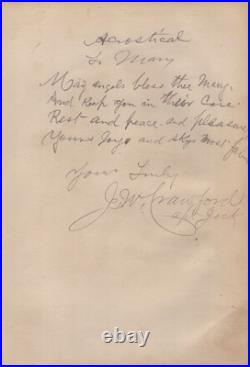 Acrostical
To Mary
May angels bless thee Mary
And Keep you in their Care
Rest and peace and pleasure
Yours joys and skys most fair
Yours Truly
J.W. Crawford
Jack
©worthpoint